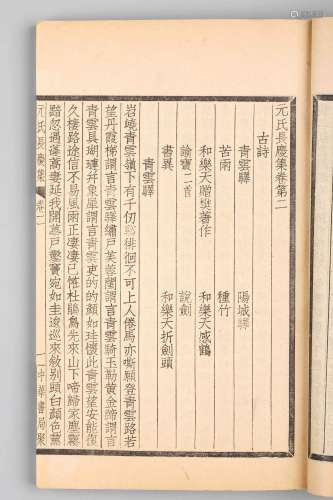 元氏長慶集卷第二
古詩
青雲驛　陽城驛
苦雨　種竹
和樂天贈樊著作　和樂天感鶴
諭寶二首　說劍
書異　和樂天折劍頭
青雲驛
岧嶢青雲嶺下有千仞谿徘徊不可上人倦馬亦嘶願登青雲路若
望丹霞梯謂言青雲驛繡戶芙蓉閨謂言青雲騎玉勒黃金蹄謂言
青雲具瑚璉并象犀謂言青雲吏的的顏如珪懷此青雲望安能復
久棲路途信不易風雨正淒淒已怪杜鵑鳥先來山下啼
黯忽遇蓬蒿妻延我開蓽戶鑿竇宛如圭逡巡來敘別頭白顏色黧
元氏長慶集　卷二
一　中華書局聚